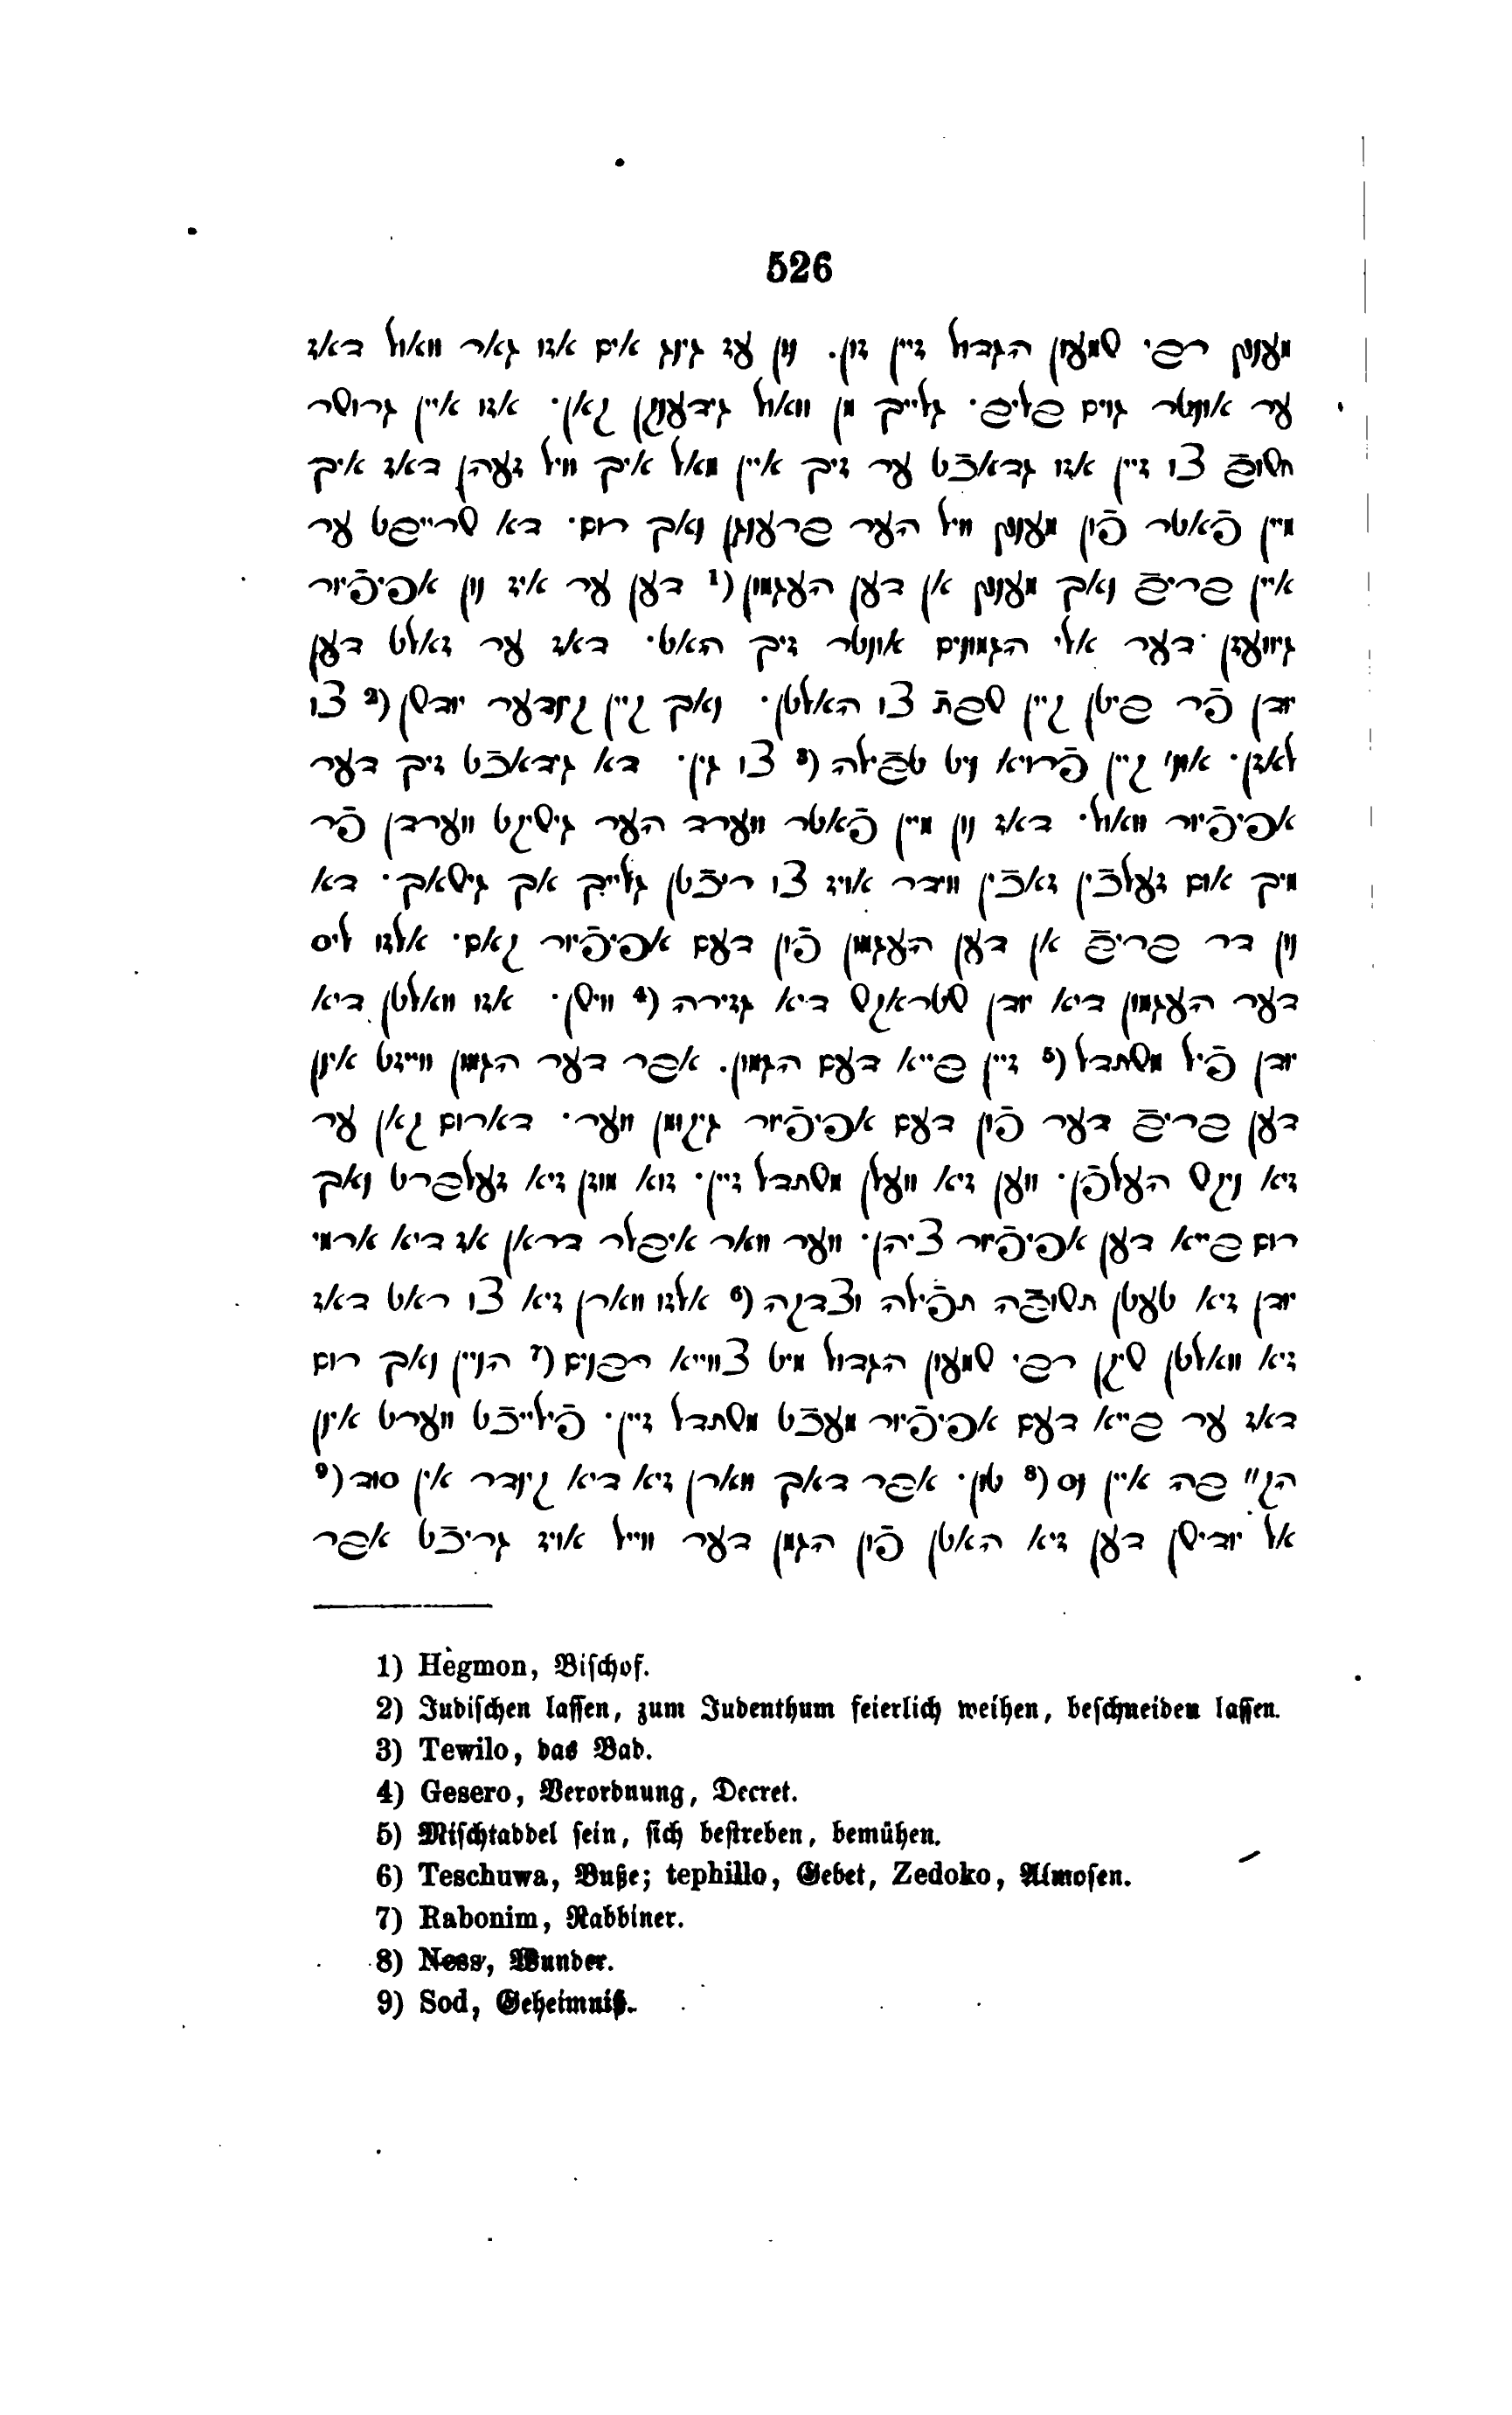 526
מענץ רבי שמעון הגדול זיין זון. נון עז גינג אים אזו גאר וואול דאז
ער אונטר גוים בליב· גלייך מן וואול גידענקן קאן· אזו איין גרוסר
חשוב צו זיין אזו גדאכֿט ער זיך איין מאל איך וויל זעהן דאז איך
מיין פֿאטר פֿון מענץ וויל הער ברענגן נאך רום· דא שרייבט ער
איין בריבֿ נאך מענץ אן דען העגמון (1 דען ער איז נון אפיפֿיור
גיוועזן דער אלי הגמונים אונטר זיך האט· דאז ער זאלט דען
יודן פֿר ביטן קיין שבת צו האלטן· נאך קיין קינדער יודשן (2 צו
לאזן· אויך קיין פֿרויא ניט טבֿילה (3 צו גין· דא גידאכֿט זיך דער
אפיפֿיור וואול· דאז נון מיין פֿאטר ווערד הער גישיקט ווערדן פֿר
מיך אום זעלכֿין זאכֿין ווידר אויז צו ריכֿטן גלייך אך גישאך· דא
נון דר בריבֿ אן דען העגמון פֿון דעם אפיפֿיור קאם· אלזו ליס
דער העגמון דיא יודן שטראקש דיא גזירה (4 וויסן· אזו וואלטן דיא
יודן פֿיל משתדל (5 זיין בייא דעם הגמון. אבר דער הגמון ווייזט אינן
דען בריבֿ דער פֿון דעם אפיפֿיור גיקומן ווער· דארום קאן ער
זיא ניקש העלפֿן· ווען זיא וועלן משתדל זיין· זוא מוזן זיא זעלברט נאך
רום בייא דען אפיפֿיור ציהן· ווער וואר איבלר דראן אז דיא ארמי
יודן זיא טעטן תשובֿה תפֿילה וצדקה (6 אלזו ווארן זיא צו ראט דאז
זיא וואלטן שיקן רבי שמעון הגדול מיט צווייא רבנים (7 הניין נאך רום
דאז ער בייא דעם אפיפֿיור מעכֿט משתדל זיין· פֿילייכֿט ווערט אינן
הק״ בה איין נס (8 טון· אבר דאך ווארן זיא דיא קינדר אין סוד (9
אל יודישן דען זיא האטן פֿון הגמן דער ווייל אויז גריכֿט אבר
1) Hegmon, Bischof.
2) Judischen lassen, zum Judenthum feierlich weihen, beschneiden lassen.
3) Tewilo, das Bad.
4) Gesero, Verordnung, Decret.
5) Mischtaddel sein, sich bestreben, bemühen.
6) Teschuwa, Buße; tephillo, Gebet, Zedoko, Almosen.
7) Rabonim, Rabbiner.
8) Ness, Wunder.
9) Sod, Geheimniß.